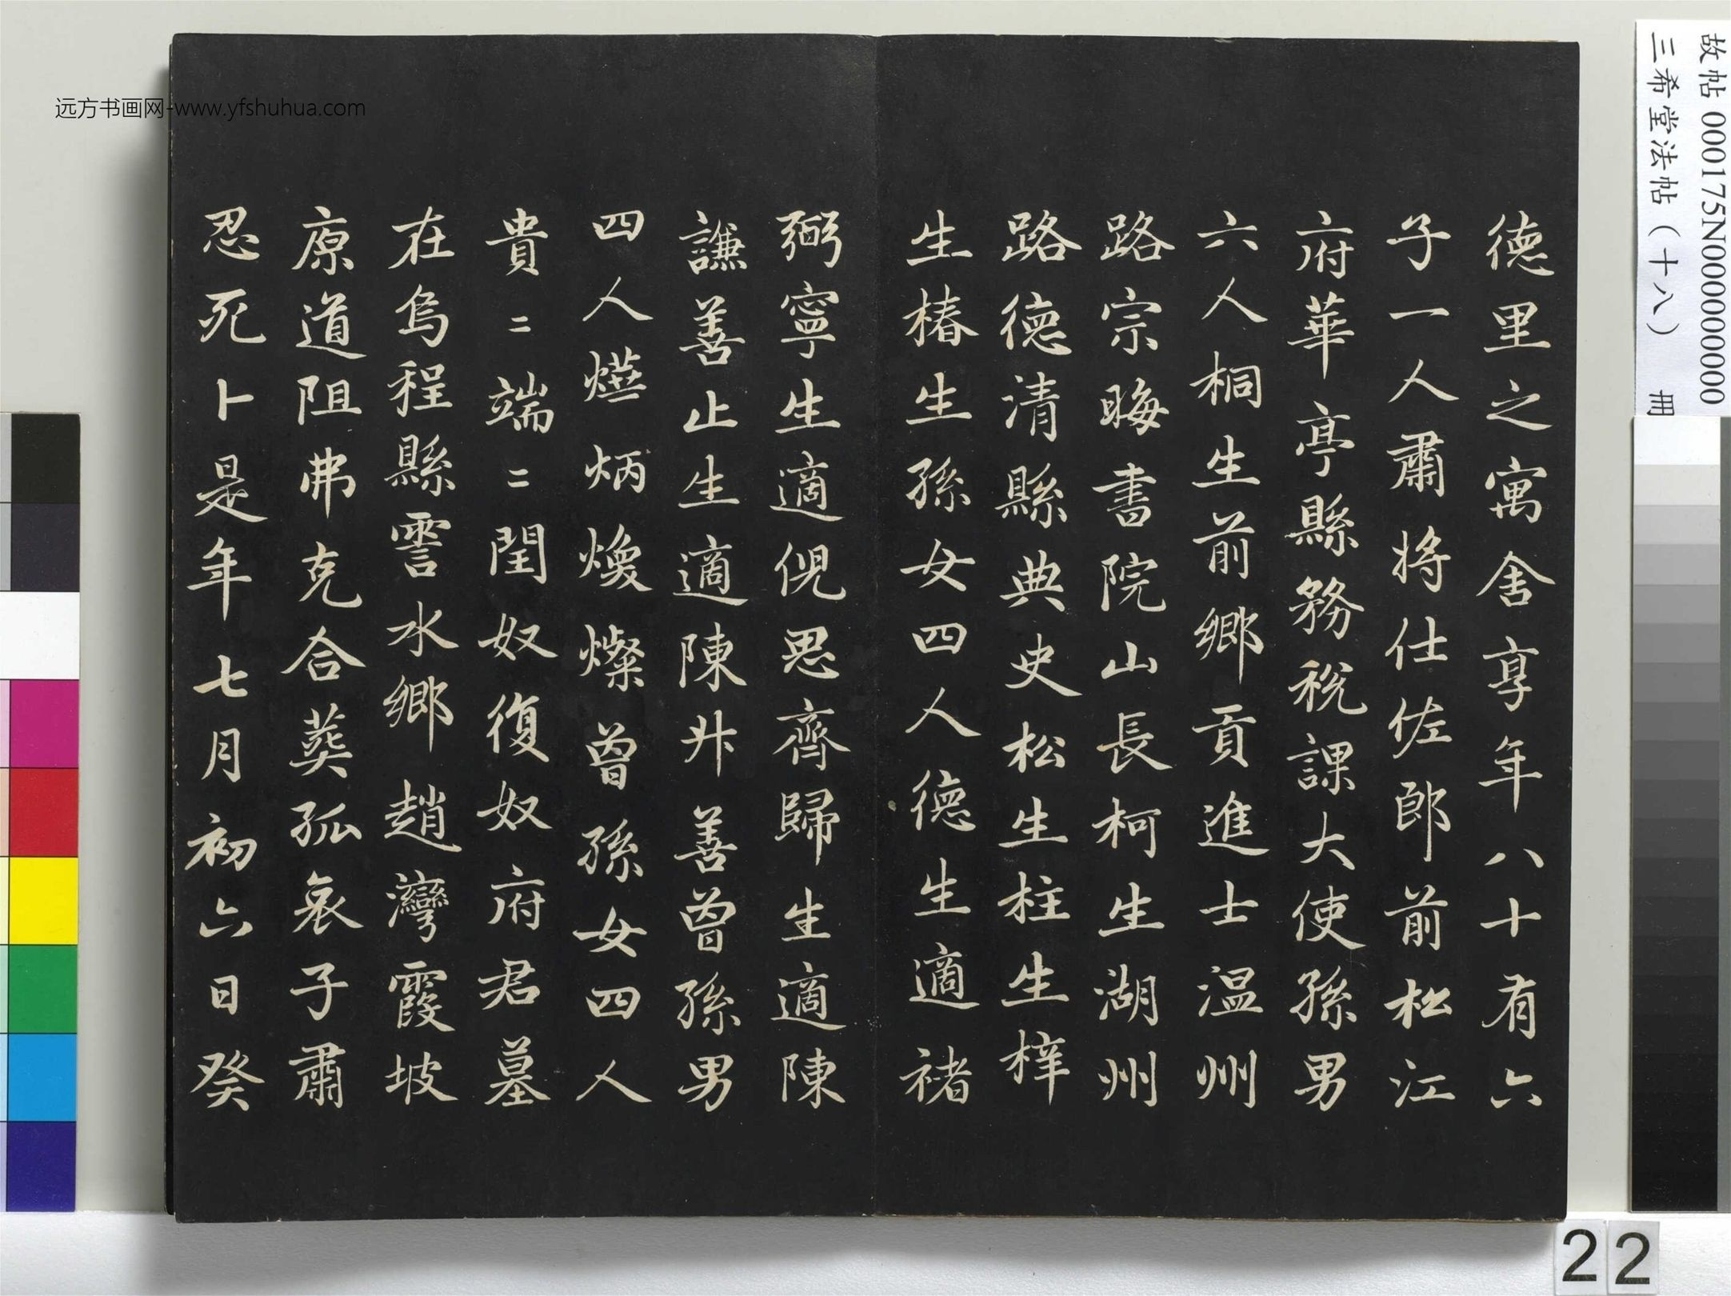 德里之寓舍享年八十有六
子一人肅將仕佐郎前松江
府華亭縣務稅課大使孫男
六人桐生前鄉貢進士温州
路宗晦書院山長柯生湖州
路德清縣典史松生柱生梓
生椿生孫女四人德生適褚
弼寧生適倪思齊歸生適陳
謙善止生適陳舛善曾孫男
四人爇炳煥燦曾孫女四人
貴=端=閏奴復奴府君墓
在烏程縣霅水鄉趙灣霞坡
原道阻弗克合葬孤哀子肅
忍死卜是年七月初六日癸
远方书画网-www.yfshuhua.com
故帖 000175N000000000
三希堂法帖（十八） 冊
22